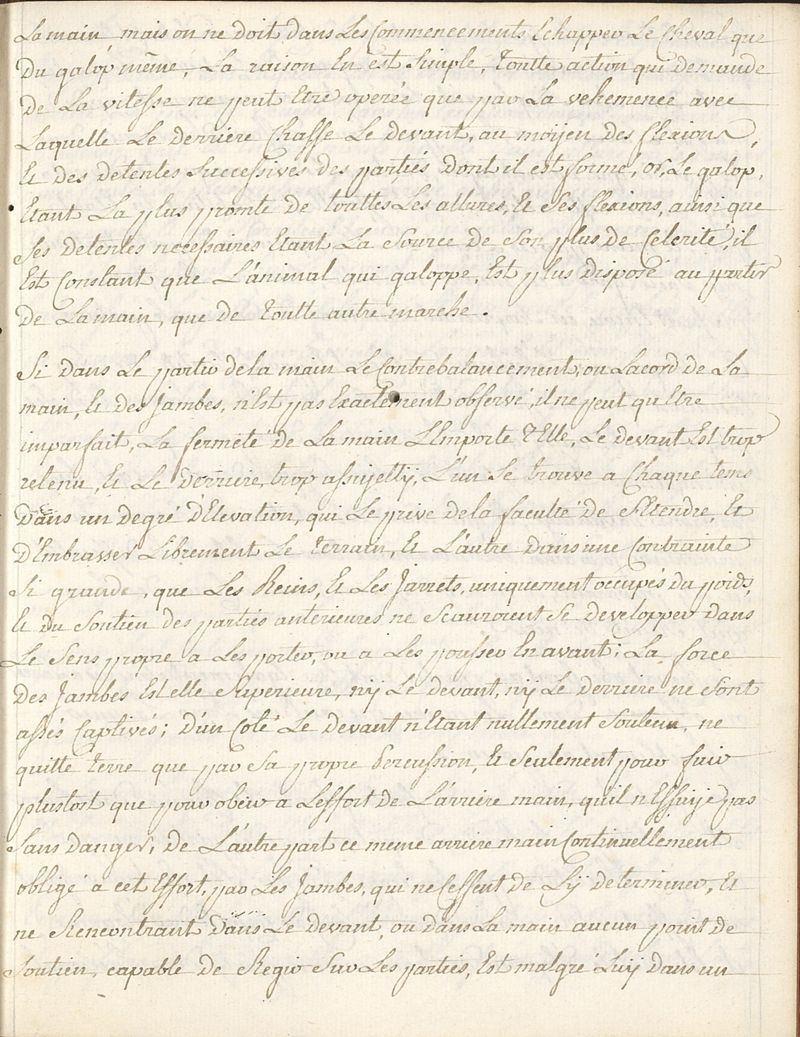 La main mais on ne doit dans Les Commencements Echapper Le Cheval que
du galop même, La raison En est simple, toutte action qui demande
de La vitesse ne peut Etre operée que par La vehemence avec
Laquelle Le derriere Chasse Le devant, au moÿen des flexions,
Et des detentes successives des partiés dont il est formé, or, Le galop,
Etant La plus promte de touttes Les allures, Et Ses flexions, ainsi que
Ses detentes necessaires Etant La Source de Son plus de Celerité, il
Est Constant que L'animal qui galoppe, Est plus disposé au partir
de La main, que de toutte autre marche.
Si dans Le partir de la main Le Contrebalancement, ou Lacord de La
main, Et des Jambes, n'Est pas Exactement observé, il ne peut qu'Etre
imparfait, La fermeté de La main L'Emporte t'Elle, Le devant Est trop
retenu, Et Le derriere, trop assujetty, L'un Se trouve a Chaque tems
dans un degré d'Elevation, qui Le prive de la faculté de s'Etendre, Et
d'Embrasser Librement Le terrain, Et L'autre dans une Contrainte
Si grande, que Les Reins, Et Les Jarrets, uniquement occupés du poids,
Et du Soutien des partiés anterieures ne Scauroient Se developper dans
Le Sens propre a Les porter, ou a Les pousser En avant; La force
des Jambes Est elle Superieure, nÿ Le devant, nÿ Le derriere ne Sont
assés Captivés; d'un Coté Le devant n'Etant nullement Soutenu, ne
quitte terre que par Sa propre Percussion, Et Seulement pour fuir
plustost que pour obéir a L'effort de L'arriere main, qu'il n'Essuÿe pas
Sans danger, de L'autre part ce meme arriere main Continuellement
obligé a cet Effort, par Les Jambes, qui ne Cessent de L'ÿ determiner, Et
ne Rencontrant dans Le devant, ou dans La main aucun point de
Soutien, capable de Regir Sur Les partiés, Est malgré Luÿ dans un